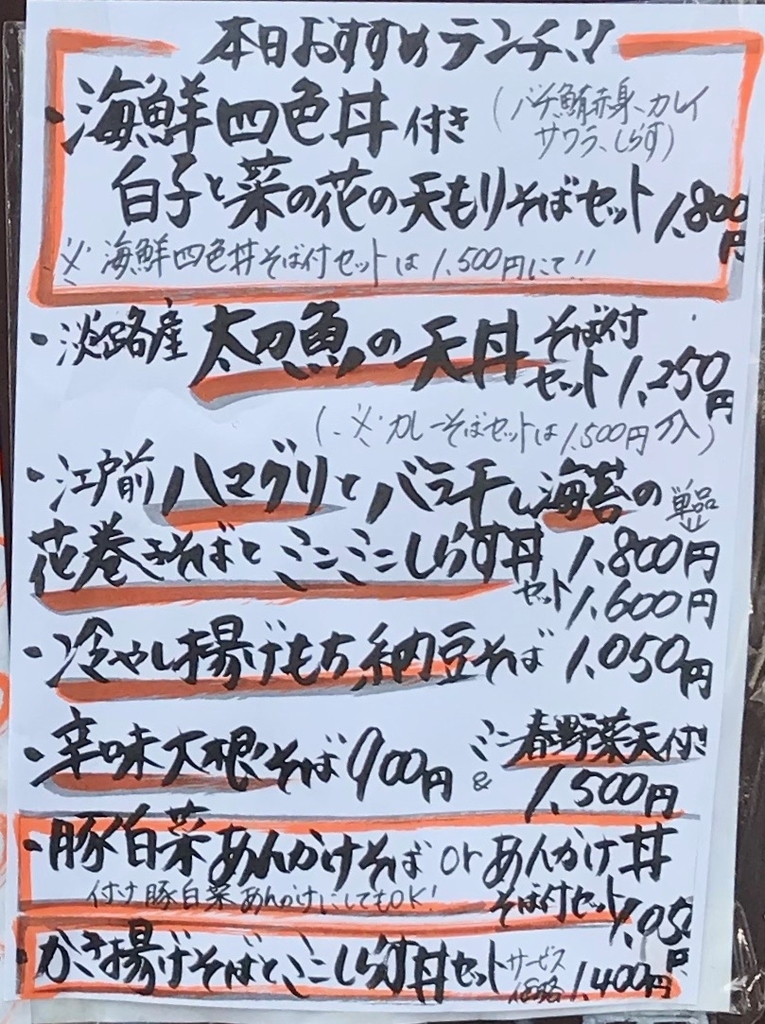 本日おすすめランチ!!
・海鮮四色丼付き(バチ鮪赤身、カレイ
サワラ、しらす)
白子と菜の花の天もりそばセット 1,800円
※海鮮四色丼そば付セットは1,500円にて!!
・淡路産 太刀魚の天丼 そば付
セット 1,250円
(※カレーそばセットは1,500円)
・江戸前ハマグリとバラ干し海苔の 単品
花巻きそばとミニミニしらす丼 1,800円
セット 1,600円
・冷やし揚げもち納豆そば 1,050円
・辛味大根そば900円 & ミニ春野菜天付き
1,500円
・豚白菜あんかけそば or あんかけ丼
付け豚白菜あんかけにしてもOK! そば付セット 1,050円
・かき揚げそばとミニしらす丼セット サービス
価格 1,400円